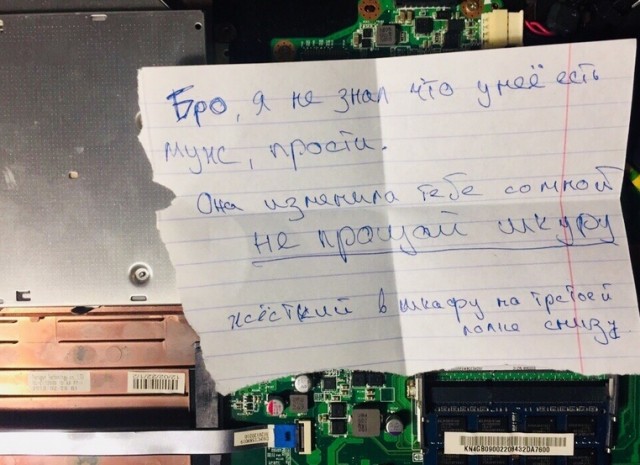 Бро, я не знал что у неё есть
мужс, прости.
Она изменила тебе со мной
не прощай шкуру
жёсткий в шкафу на третьей
полке снизу.
KN4GB0900220M432DA7600